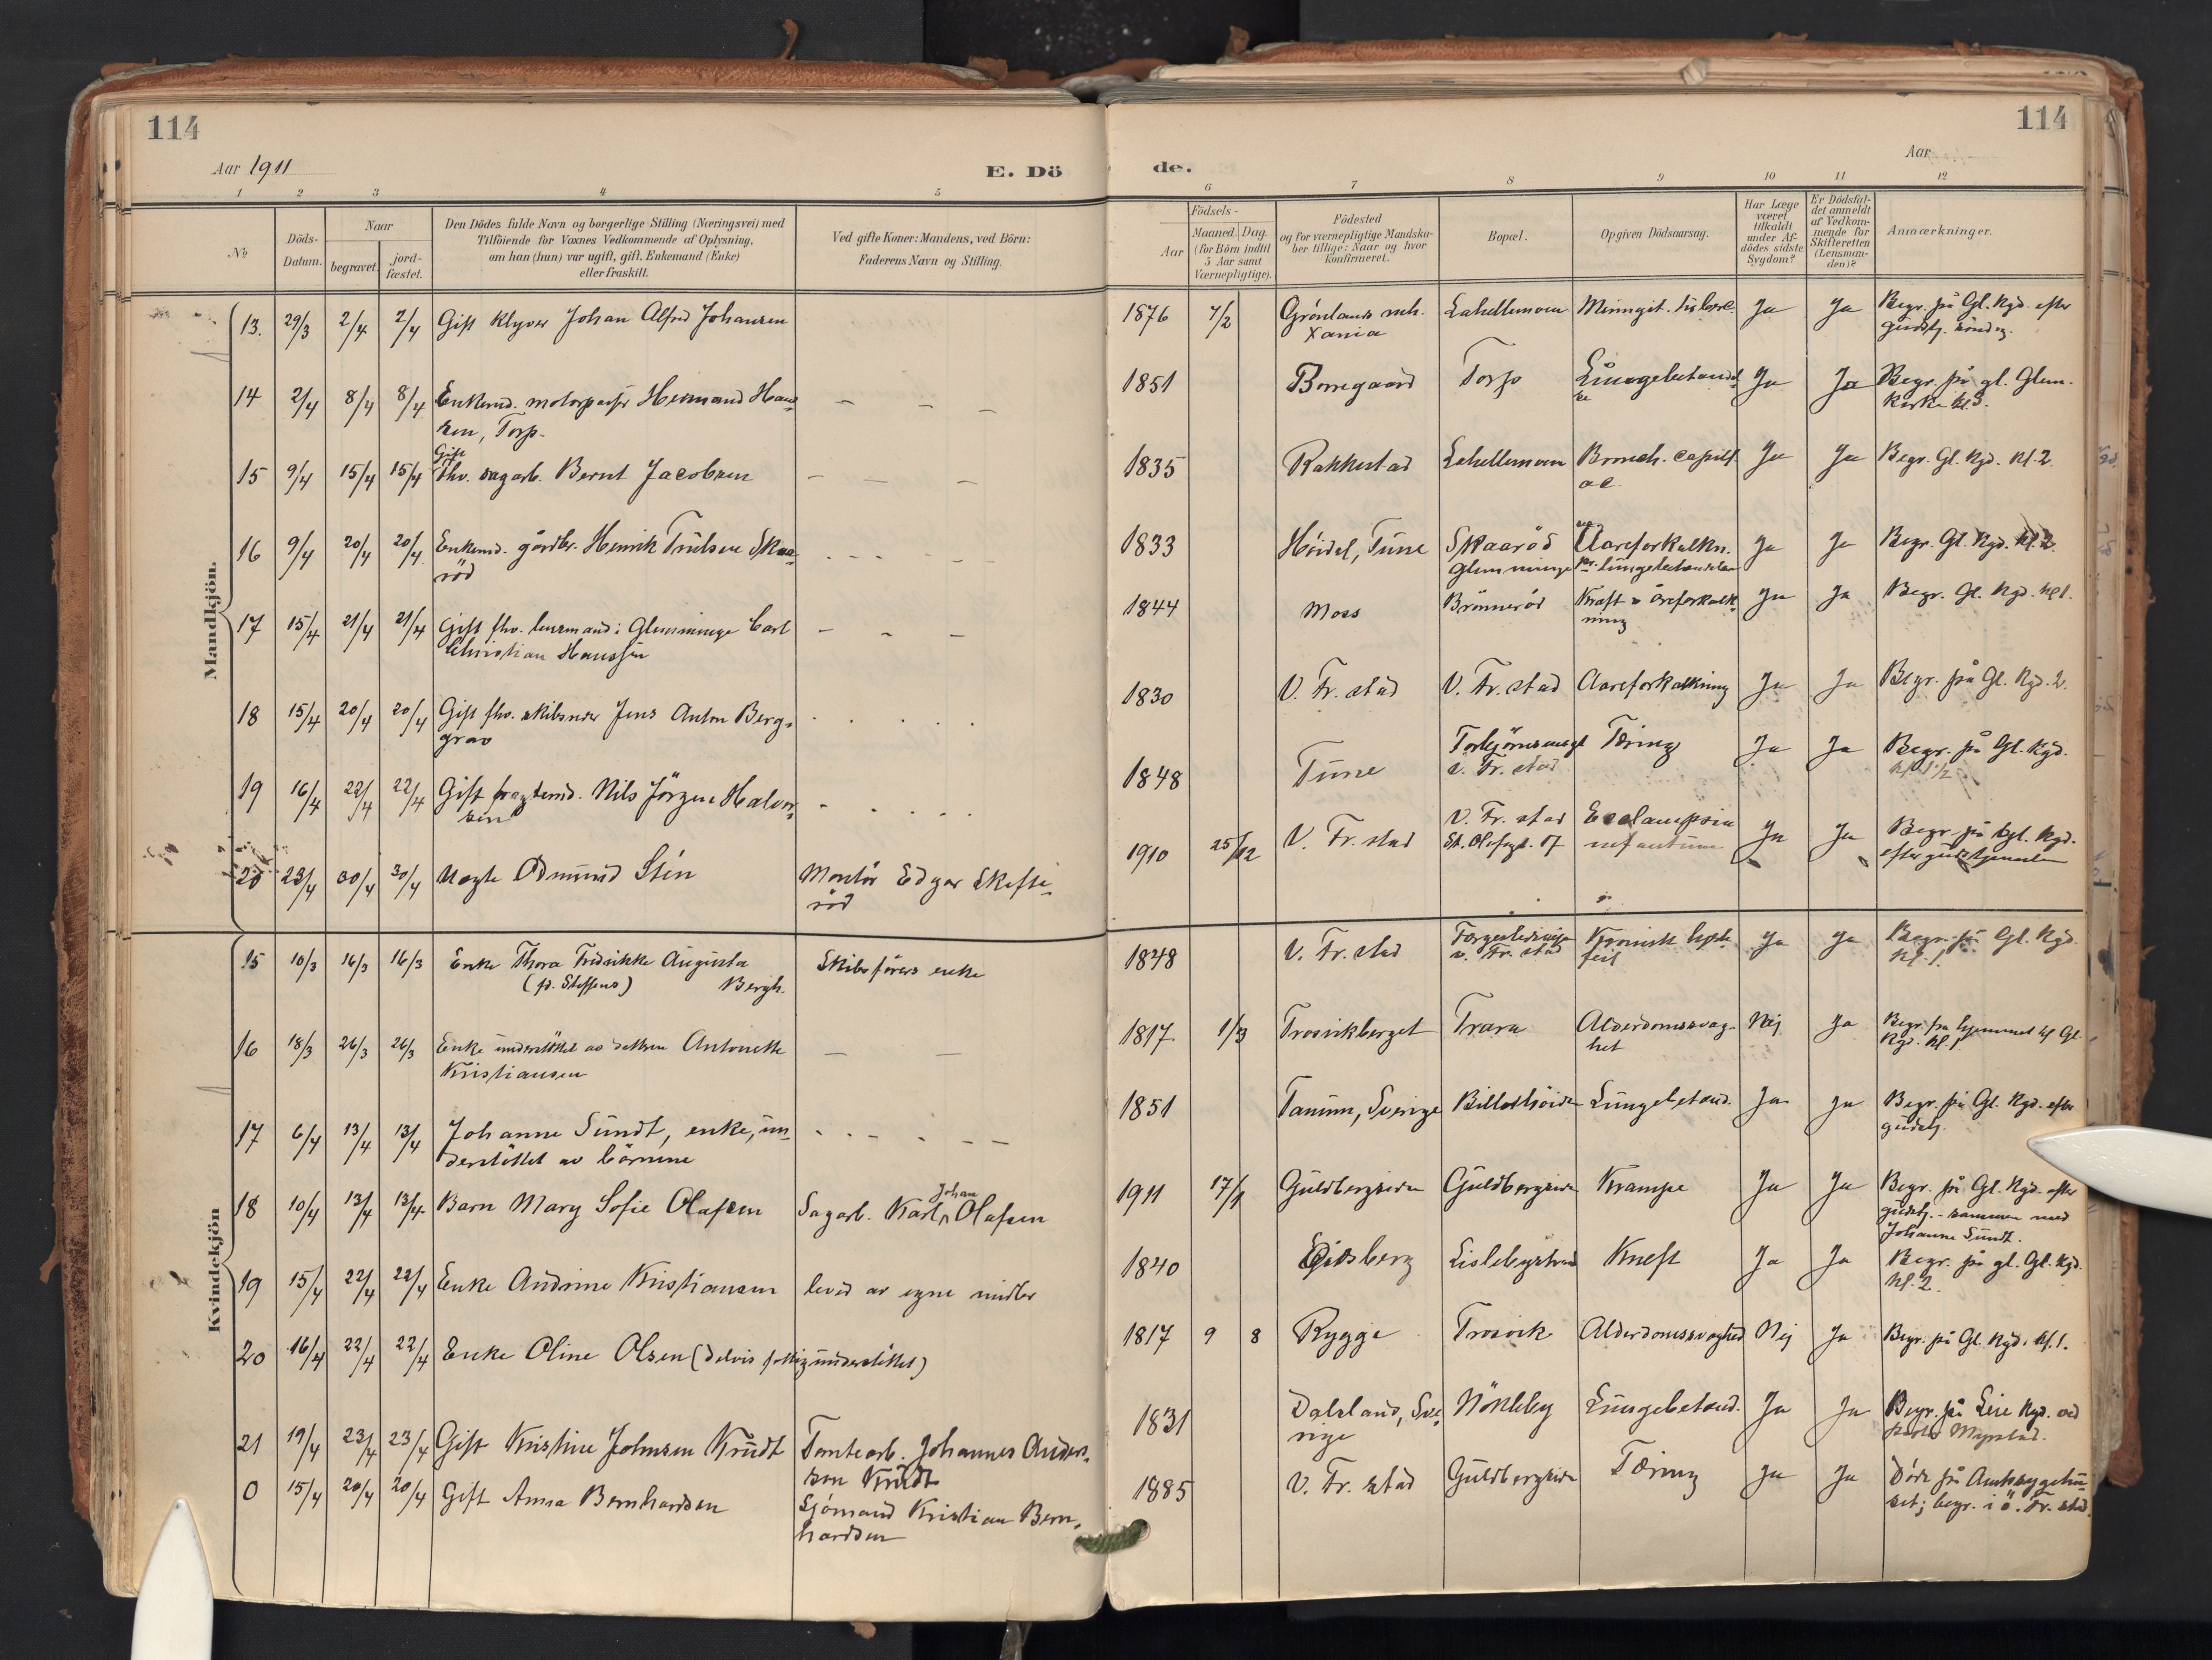 114
Aar 1911
E. Dö
1 2 3 4 5
No
Döds-
Datum.
Naar
begravet.
jord-
fæstet.
Den Dödes fulde Navn og borgerlige Stilling (Næringsvei) med
Tilföiende for Voxnes Vedkommende af Oplysning,
om han (hun) var ugift, gift, Enkemand (Enke)
eller fraskilt.
Ved gifte Koner: Mandens, ved Börn:
Faderens Navn og Stilling.
Mandkjön.
13. 29/3 2/4 2/4 Gift Klyver Johan Alfred Johansen
14 2/4 8/4 8/4 Enkemd. Hermand Han-
sen, Torp.
Gift
15 9/4 15/4 15/4 Fhv. sagarb. Bernt Jacobsen
16 9/4 20/4 20/4 Enkemd. gårdbr. Henrik Trulsen Skaa-
röd
17 15/4 21/4 21/4 Gift fhv. lensmand i Glemminge Carl
Christian Hanssen
18 15/4 20/4 20/4 Gift fhv. Jens Anton Berg-
grav
19 16/4 22/4 22/4 Gift fragtemd. Nils Jörgen Halvor-
sen
20 23/4 30/4 30/4 Uegte Odmund Stén Montör Edgar Skifte-
röd
Kvindekjön
15 10/3 16/3 16/3 Enke Thora Fredrikke Augusta Skibsförers enke
(f. Steffens) Bergh.
16 18/3 26/3 26/3 Enke understöttet av datteren Antonette
Kristiansen
17 6/4 13/4 13/4 Johanne Sundt, enke, un-
derstöttet av börnene
18 10/4 13/4 13/4 Barn Mary Sofie Olafsen Sagarb. Karl Johan Olafsen
19 15/4 22/4 22/4 Enke Andrine Kristiansen leved av egne midler
20 16/4 22/4 22/4 Enke Oline Olsen (delvis fattigunderstöttet)
21 19/4 23/4 23/4 Gift Kristine Johnsen Krudt Tomtearb. Johannes Anders-
sen Krudt
0 15/4 20/4 20/4 Gift Anna Bernhardsen Sjömand Kristian Bern-
hardsen
114
de.
Aar
6 7 8 9 10 11 12
Aar
Födsels-
Maaned. Dag.
(for Börn indtil
5 Aar samt
Værnepligtige).
Födested
og for værnepligtige Mandska-
ber tillige: Naar og hvor
konfirmeret.
Bopæl.
Opgiven Dödsaarsag.
Har Læge
været
tilkaldt
under Af-
dödes sidste
Sygdom?
Er Dödsfal-
det anmeldt
af Vedkom-
mende for
Skifteretten
(Lensman-
den)?
Anmærkninger.
1876 7/2 Grönlands mh. Lahellemoen Meningit. tuberc. Ja Ja Begr. på Gl. Kgd. efter
Xania gudstj. söndag.
1851 Borregaard Torp Lungebetændel- Ja Ja Begr. på gl. Glem.
se kirke kl. 3.
1835 Rakkestad Lahellemoen Bronch. capill. Ja Ja Begr. Gl. Kgd. kl. 2.
ac.
1833 Höidal, Tune Skaaröd Aareforkalkn. Ja Ja Begr. Gl. Kgd. kl. 2.
Glemminge lungebetændelse
1844 Moss Brönneröd Kræft & åreforkalk- Ja Ja Begr. Gl. Kgd. kl 1.
ning
1830 V. Fr. stad V. Fr. stad Aareforkalkning Ja Ja Begr. på Gl. Kgd. 2.
1848 Tune Torbjörnsengt Tæring Ja Ja Begr. på Gl. Kgd.
v. Fr. stad kl 1 1/2
1910 25/12 V. Fr. stad V. Fr. stad Eclampsia Ja Ja Begr. på Gl. Kgd.
St. Olafsgt. 17 infantum efter gudstjenesten
1848 V. Fr. stad Færgestedsveien Kronisk hjerte- Ja Ja Begr. på Gl. Kgd.
v. Fr. stad feil kl. 1.
1817 1/3 Trosvikberget Trara Alderdomssvag- Nei Ja Begr. fra hjemmet til Gl.
het Kgd. kl. 1
1851 Tanum, Sverige Lungebetænd. Ja Ja Begr. på Gl. Kgd. efter
gudstj.
1911 17/1 Guldbergsiden Guldbergsiden Krampe Ja Ja Begr. på Gl. Kgd. efter
gudstj. - sammen med
Johanne Sundt.
1840 Eidsberg Lislebystrand Kræft Ja Ja Begr. på gl. Gl. Kgd.
kl. 2.
1817 9 8 Rygge Trosvik Alderdomssvaghed Nej Ja Begr. på Gl. Kgd. kl. 1.
1831 Dalsland, Sve- Nökleby Lungebetænd. Ja Ja Begr. på Leie Kgd. ved
rige Magstad.
1885 V. Fr. stad Guldbergsiden Tæring Ja Ja Döde på Amtssygehu-
set; begr. i ö. Fr. stad.